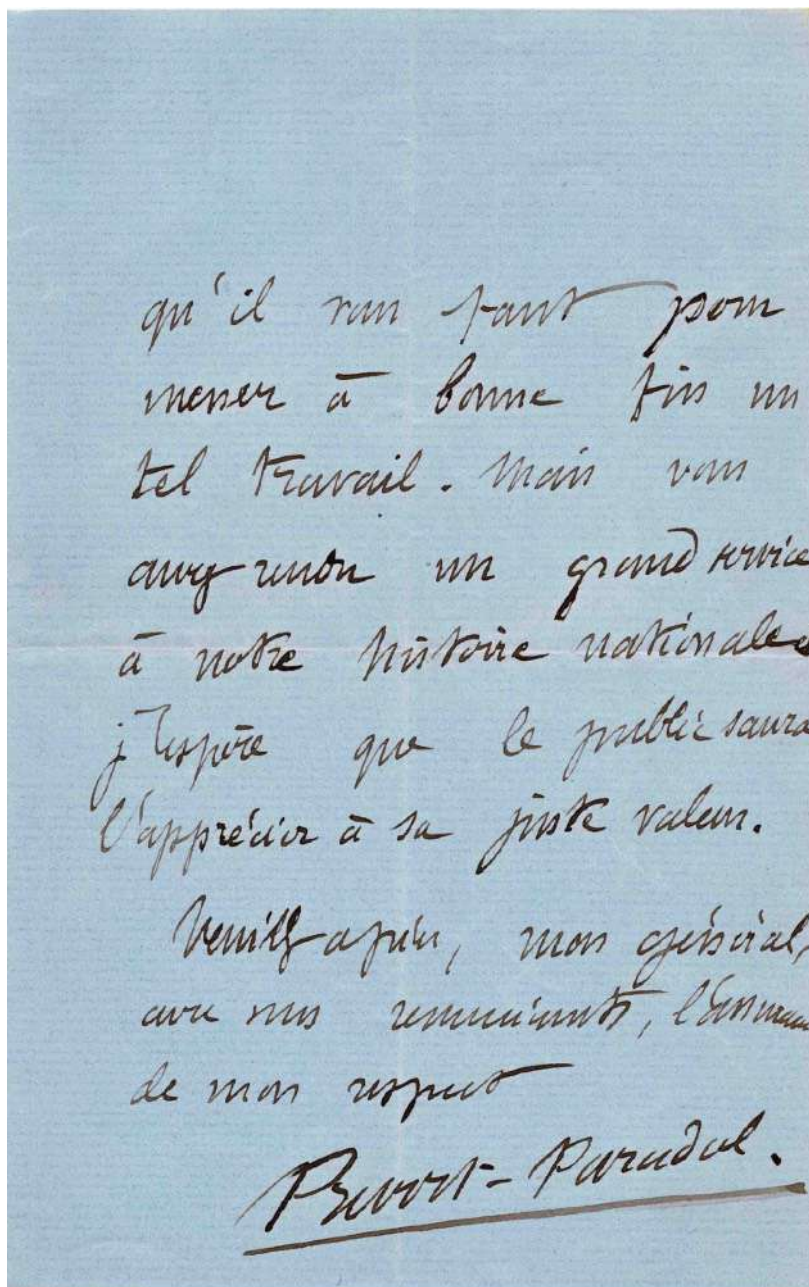 qu'il vous faut pour
mener à bonne fin un
tel travail. Mais vous
aurez rendu un grand service
à notre histoire nationale &
j'espère que le public saura
l'apprécier à sa juste valeur.
Veuillez agréer, mon général,
avec mes remerciements, l'assurance
de mon respect
Prevost-Paradol.